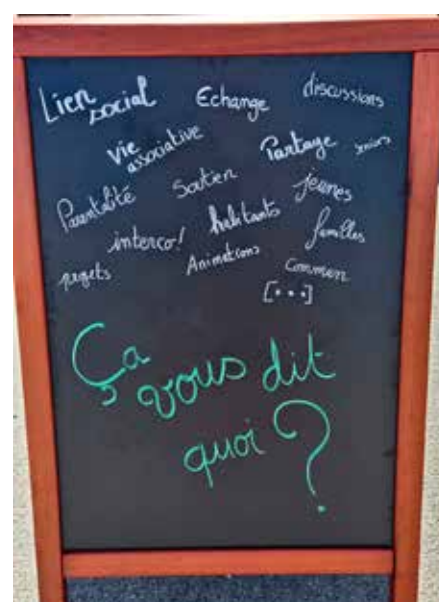 Lien social Echange discussions
Vie associative Partage seniors
Parentalité Soutien jeunes
interco! habitants familles
projets Animations Commun
[...]
Ça
vous dit
quoi ?